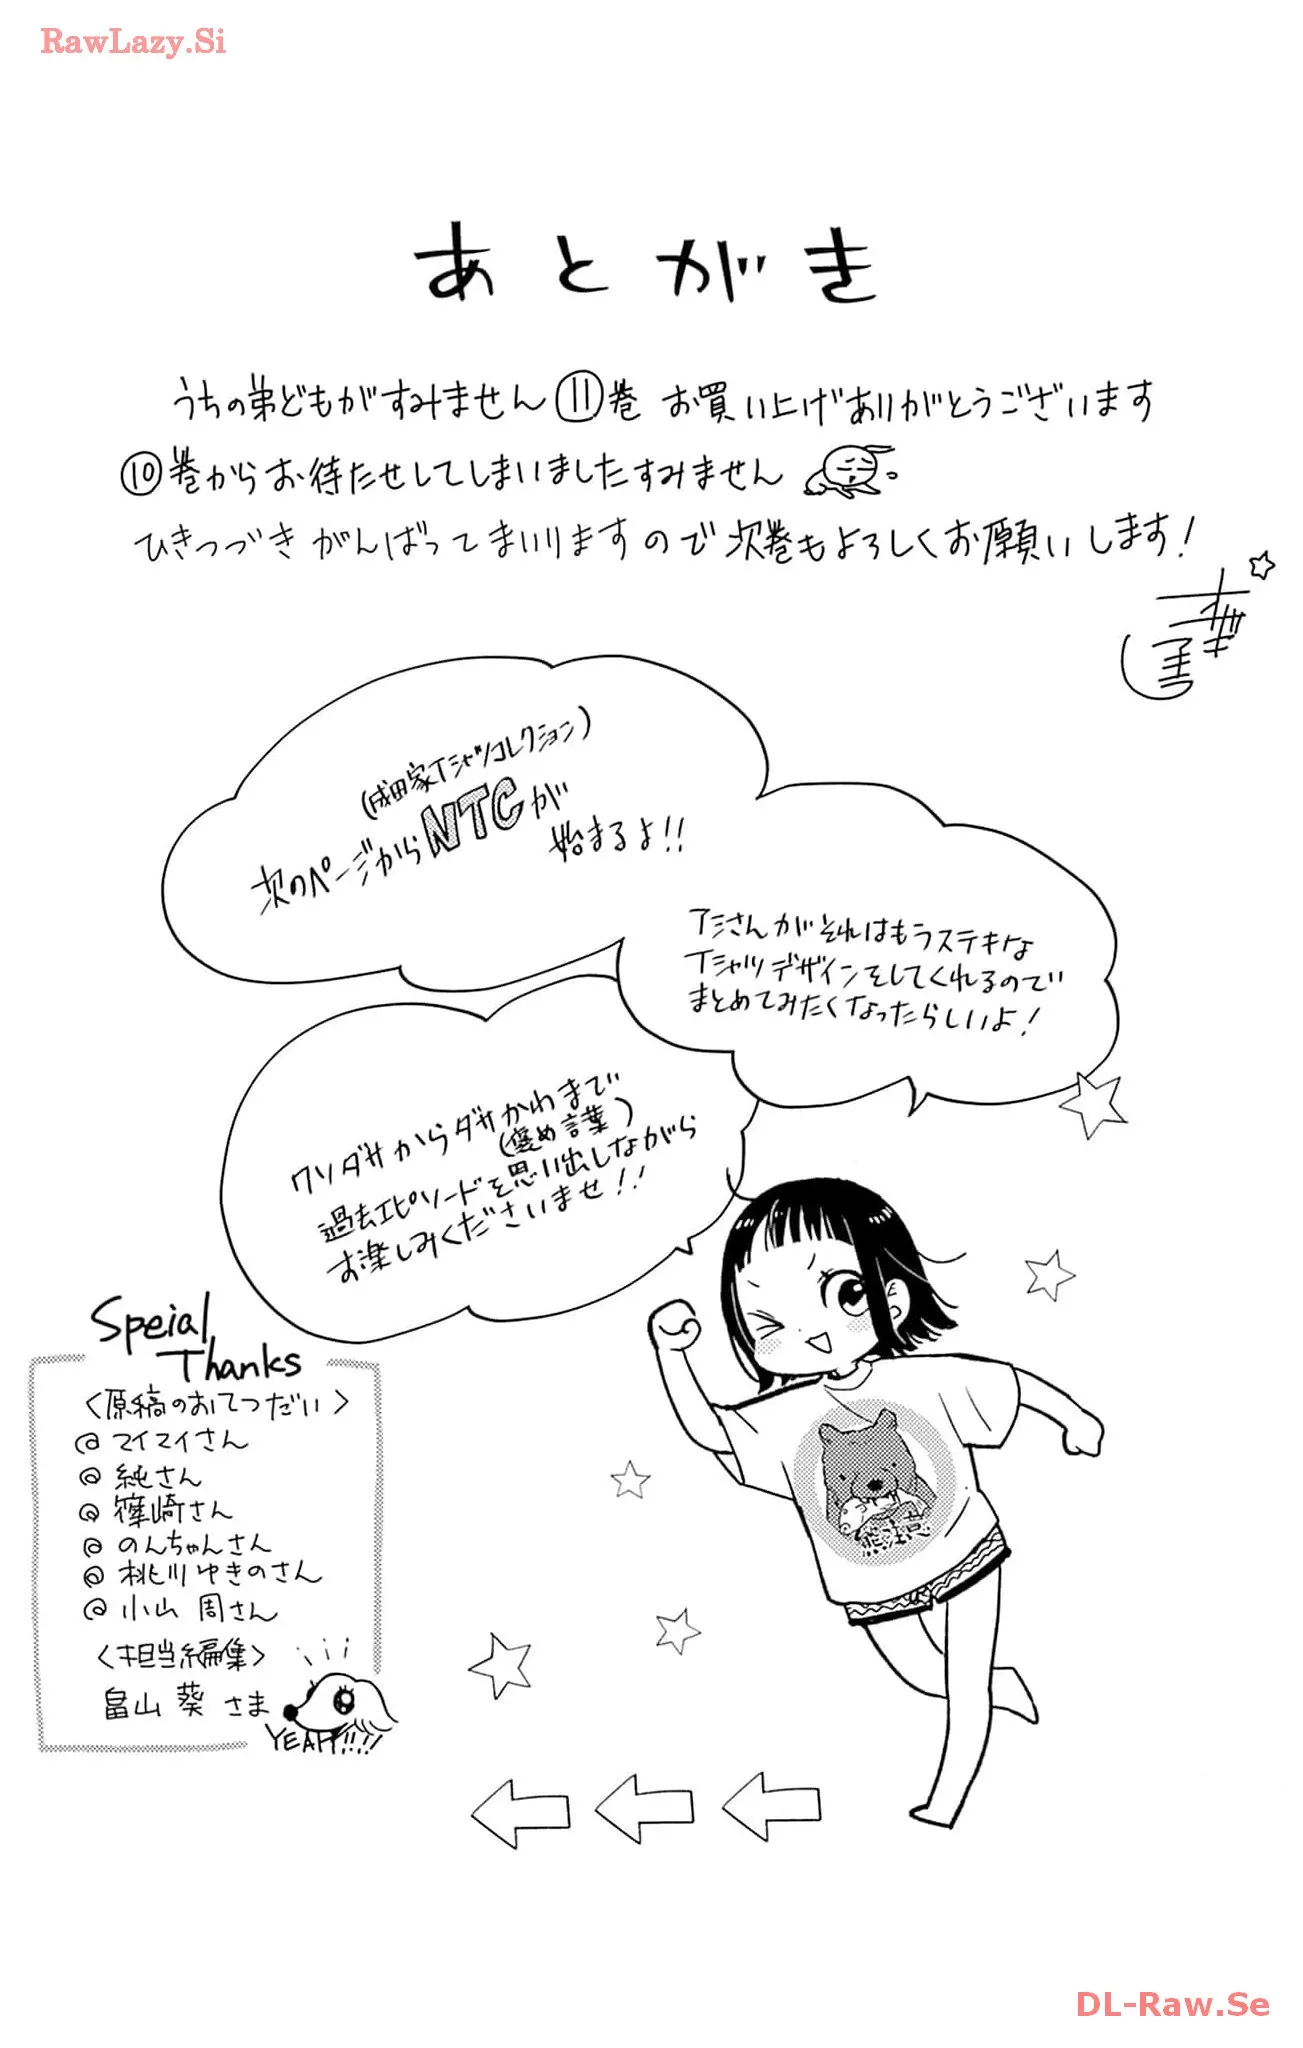 RawLazy.Si
あとがき
うちの弟どもがすみません⑪巻 お買い上げありがとうございます
⑩巻からお待たせしてしまいましたすみません
ひきつづきがんばってまいりますので次巻もよろしくお願いします!
(成田家Tシャツコレクション)
次のページからNTCが
始まるよ!!
アミさんがそれはもうステキな
Tシャツデザインをしてくれるので
まとめてみたくなったらしいよ!
クソダサからダサかわまで
(褒め言葉)
過去エピソードを思い出しながら
お楽しみくださいませ!!
Speial
Thanks
<原稿のおてつだい>
@マイマイさん
@純さん
@篠崎さん
@のんちゃんさん
@桃川ゆきのさん
@小山 周さん
<担当編集>
畠山 葵 さま
YEAH!!!!
熊注意
DL-Raw.Se